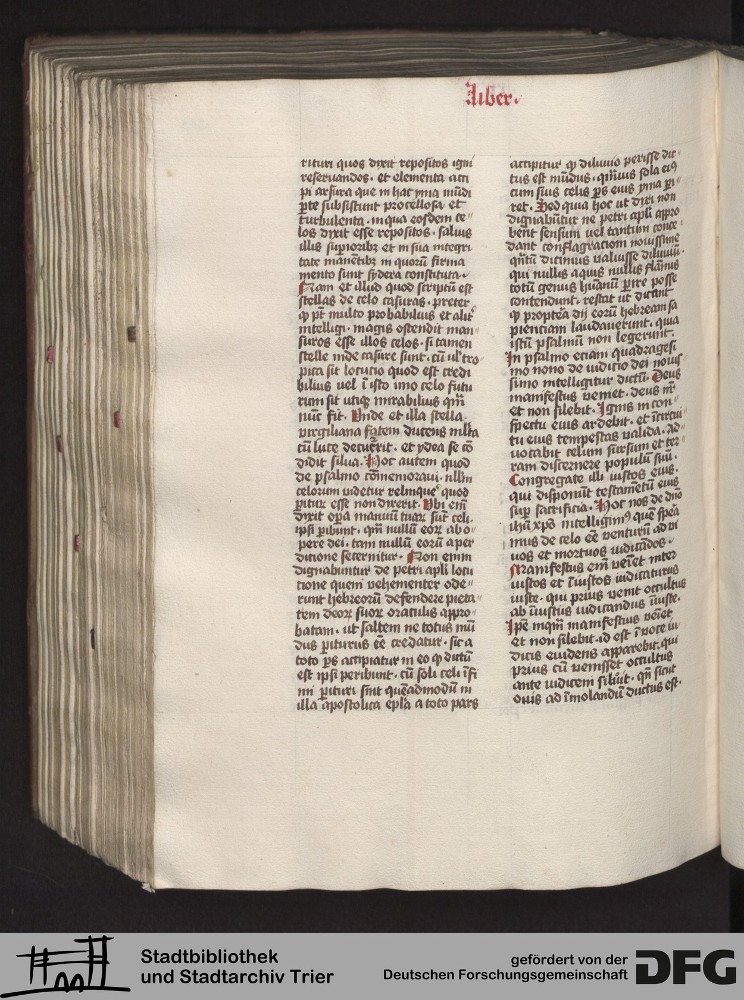 Liber.
rituri quos dixit repositos igni
reseruandos. et elementa acci
pi arsura que in hac yma mūdi
ꝑte subsistunt procellosa et
turbulenta. in qua eosdem ce
los dixit esse repositos. saluis
illis suꝑioribꝫ et in sua integri
tate manētibꝫ in quorū firma
mento sunt sydera constituta.
Nam et illud quod scriptū est
stellas de celo casuras. preter
ꝙ pt̄ multo probabilius et alit̄
intelligi. magis ostendit man
suros esse illos celos. si tamen
stelle inde casure sunt. cū ul̓ tro
pica sit locucio quod est credi
bilius uel ī isto imo celo futu
rum sit utiqꝫ mirabilius qm̄
nūc fit. Unde et illa stella
uirgiliana facem ducens ml̓ta
cū luce decucr̄rit. et ydea se cō
didit silua. Hoc autem quod
de psalmo cōmemoraui. nllm̄
celorum uidetur relinque̓ quod
ꝑitur̄ esse non dixerit. Ubi em̄
dixit oꝑa manuū tuaꝝ sūt celi.
ipsi ꝑibunt. qm̄ nullū eoꝝ ab o
pere dei. tam nullū eorū a per
dicione secernitur. Non enim
dignabuntur de petri apl̓i locu
cione quem uehementer ode
runt hebreorū defendere pieta
tem deoꝝ suoꝝ oraculis appro
batam. ut saltem ne totus mū
dus ꝑiturus eē credatur. sic a
toto ꝑs accipiatur in eo ꝙ dictū
est ipsi peribunt. cū soli celi īfi
mi ꝑituri sint quēadmodū in
illa apostolica epl̓a a toto pars
accipitur ꝙ diluuio perisse dic
tus est mūdus. q̄muis sola eiꝰ
cum suis celis ꝑs eius yma ꝑi
ret. Sed quia hoc ut dixi non
dignabūtur ne petri apl̓i appro
bent sensum uel tantum conce
dant conflagracioni nouissime
q̄ntū dicimus ualuisse diluuiū.
qui nullis aquis nullis flāmis
totū genus huānū ꝑire posse
contendunt. restat ut dicant
ꝙ propterea dij eorū hebream sa
pienciam laudauerunt. quia
istū psalmū non legerunt.
In psalmo eciam quadragesi
mo nono de iudicio dei nouis
simo intelligitur dictū. Deus
manifestus ueniet. deus nr̄
et non silebit. Ignis in con
spectu eius ardebit. et ī circui
tu eius tempestas ualida. Ad
uocabit celum sursum et ter
ram discernere populū suū.
Congregate illi iustos eius.
qui disponūt testametū eius
suꝑ sacrificia. Hoc nos de dn̄o
ihū xp̄o intelligimꝰ quē spera
mus de celo eē uenturū ad ui
uos et mortuos iudicādos.
Manifestus em̄ ueīet inter
iustos et īiustos iudicaturus
iuste. qui prius uenit occultus
ab īiustis iudicandus īiuste.
Ipē inqm̄ manifestus ueīet
et non silebit. id est ī uoce iu
dicis euidens apparebit. qui
prius cū uenisset occultus
ante iudicem siluit. qn̄ sicut
ouis ad īmolandū ductus est.
Stadtbibliothek
und Stadtarchiv Trier
gefördert von der
Deutschen Forschungsgemeinschaft
DFG